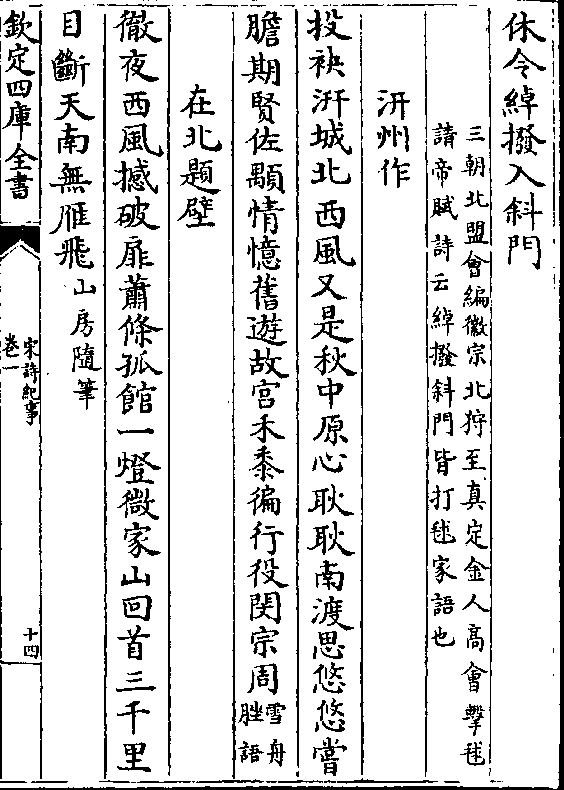 休令綽撥入斜門
三朝北盟會編徽宗北狩至真定金人高會擊毬
請帝賦詩云綽撥斜門皆打毬家語也
汧州作
投袂汧城北西風又是秋中原心耿耿南渡思悠悠嘗
膽期賢佐顒情憶舊遊故宫禾黍徧行役閔宗周雪舟脞語
在北題壁
徹夜西風撼破扉蕭條孤館一燈微家山回首三千里
目斷天南無雁飛山房隨筆
欽定四庫全書
宋詩紀事
卷一
十四